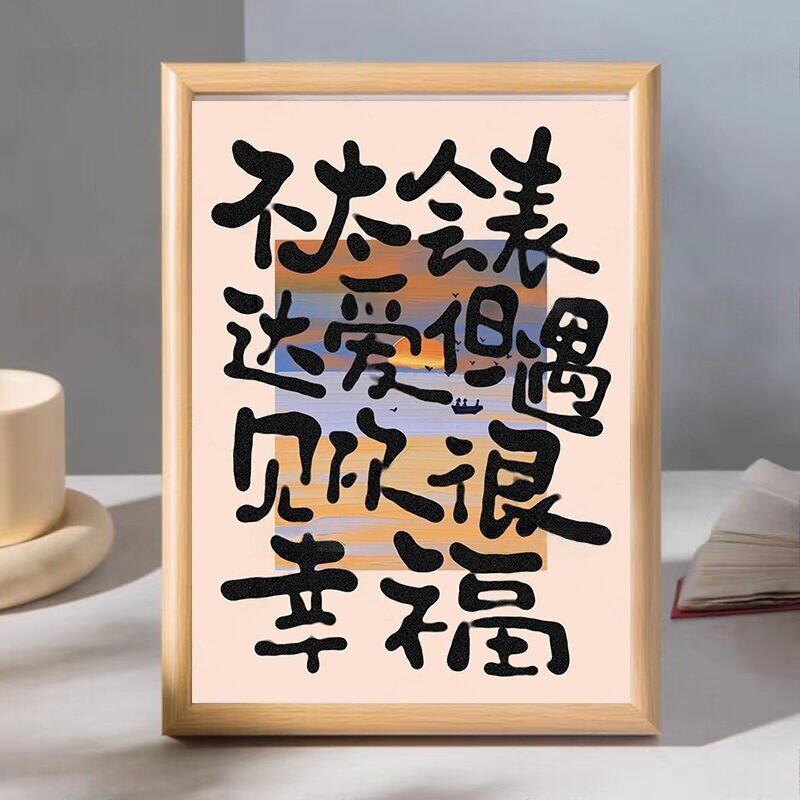 不太会表
达爱但遇
见很
幸福